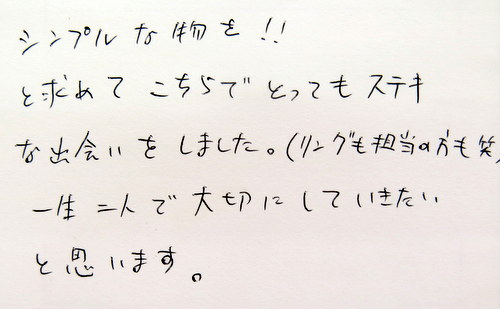 シンプルな物を!!
と求めて こちらで とっても ステキ
な出会いを しました。(リングも担当の方も笑)
一生 二人で 大切に していきたい
と思います。